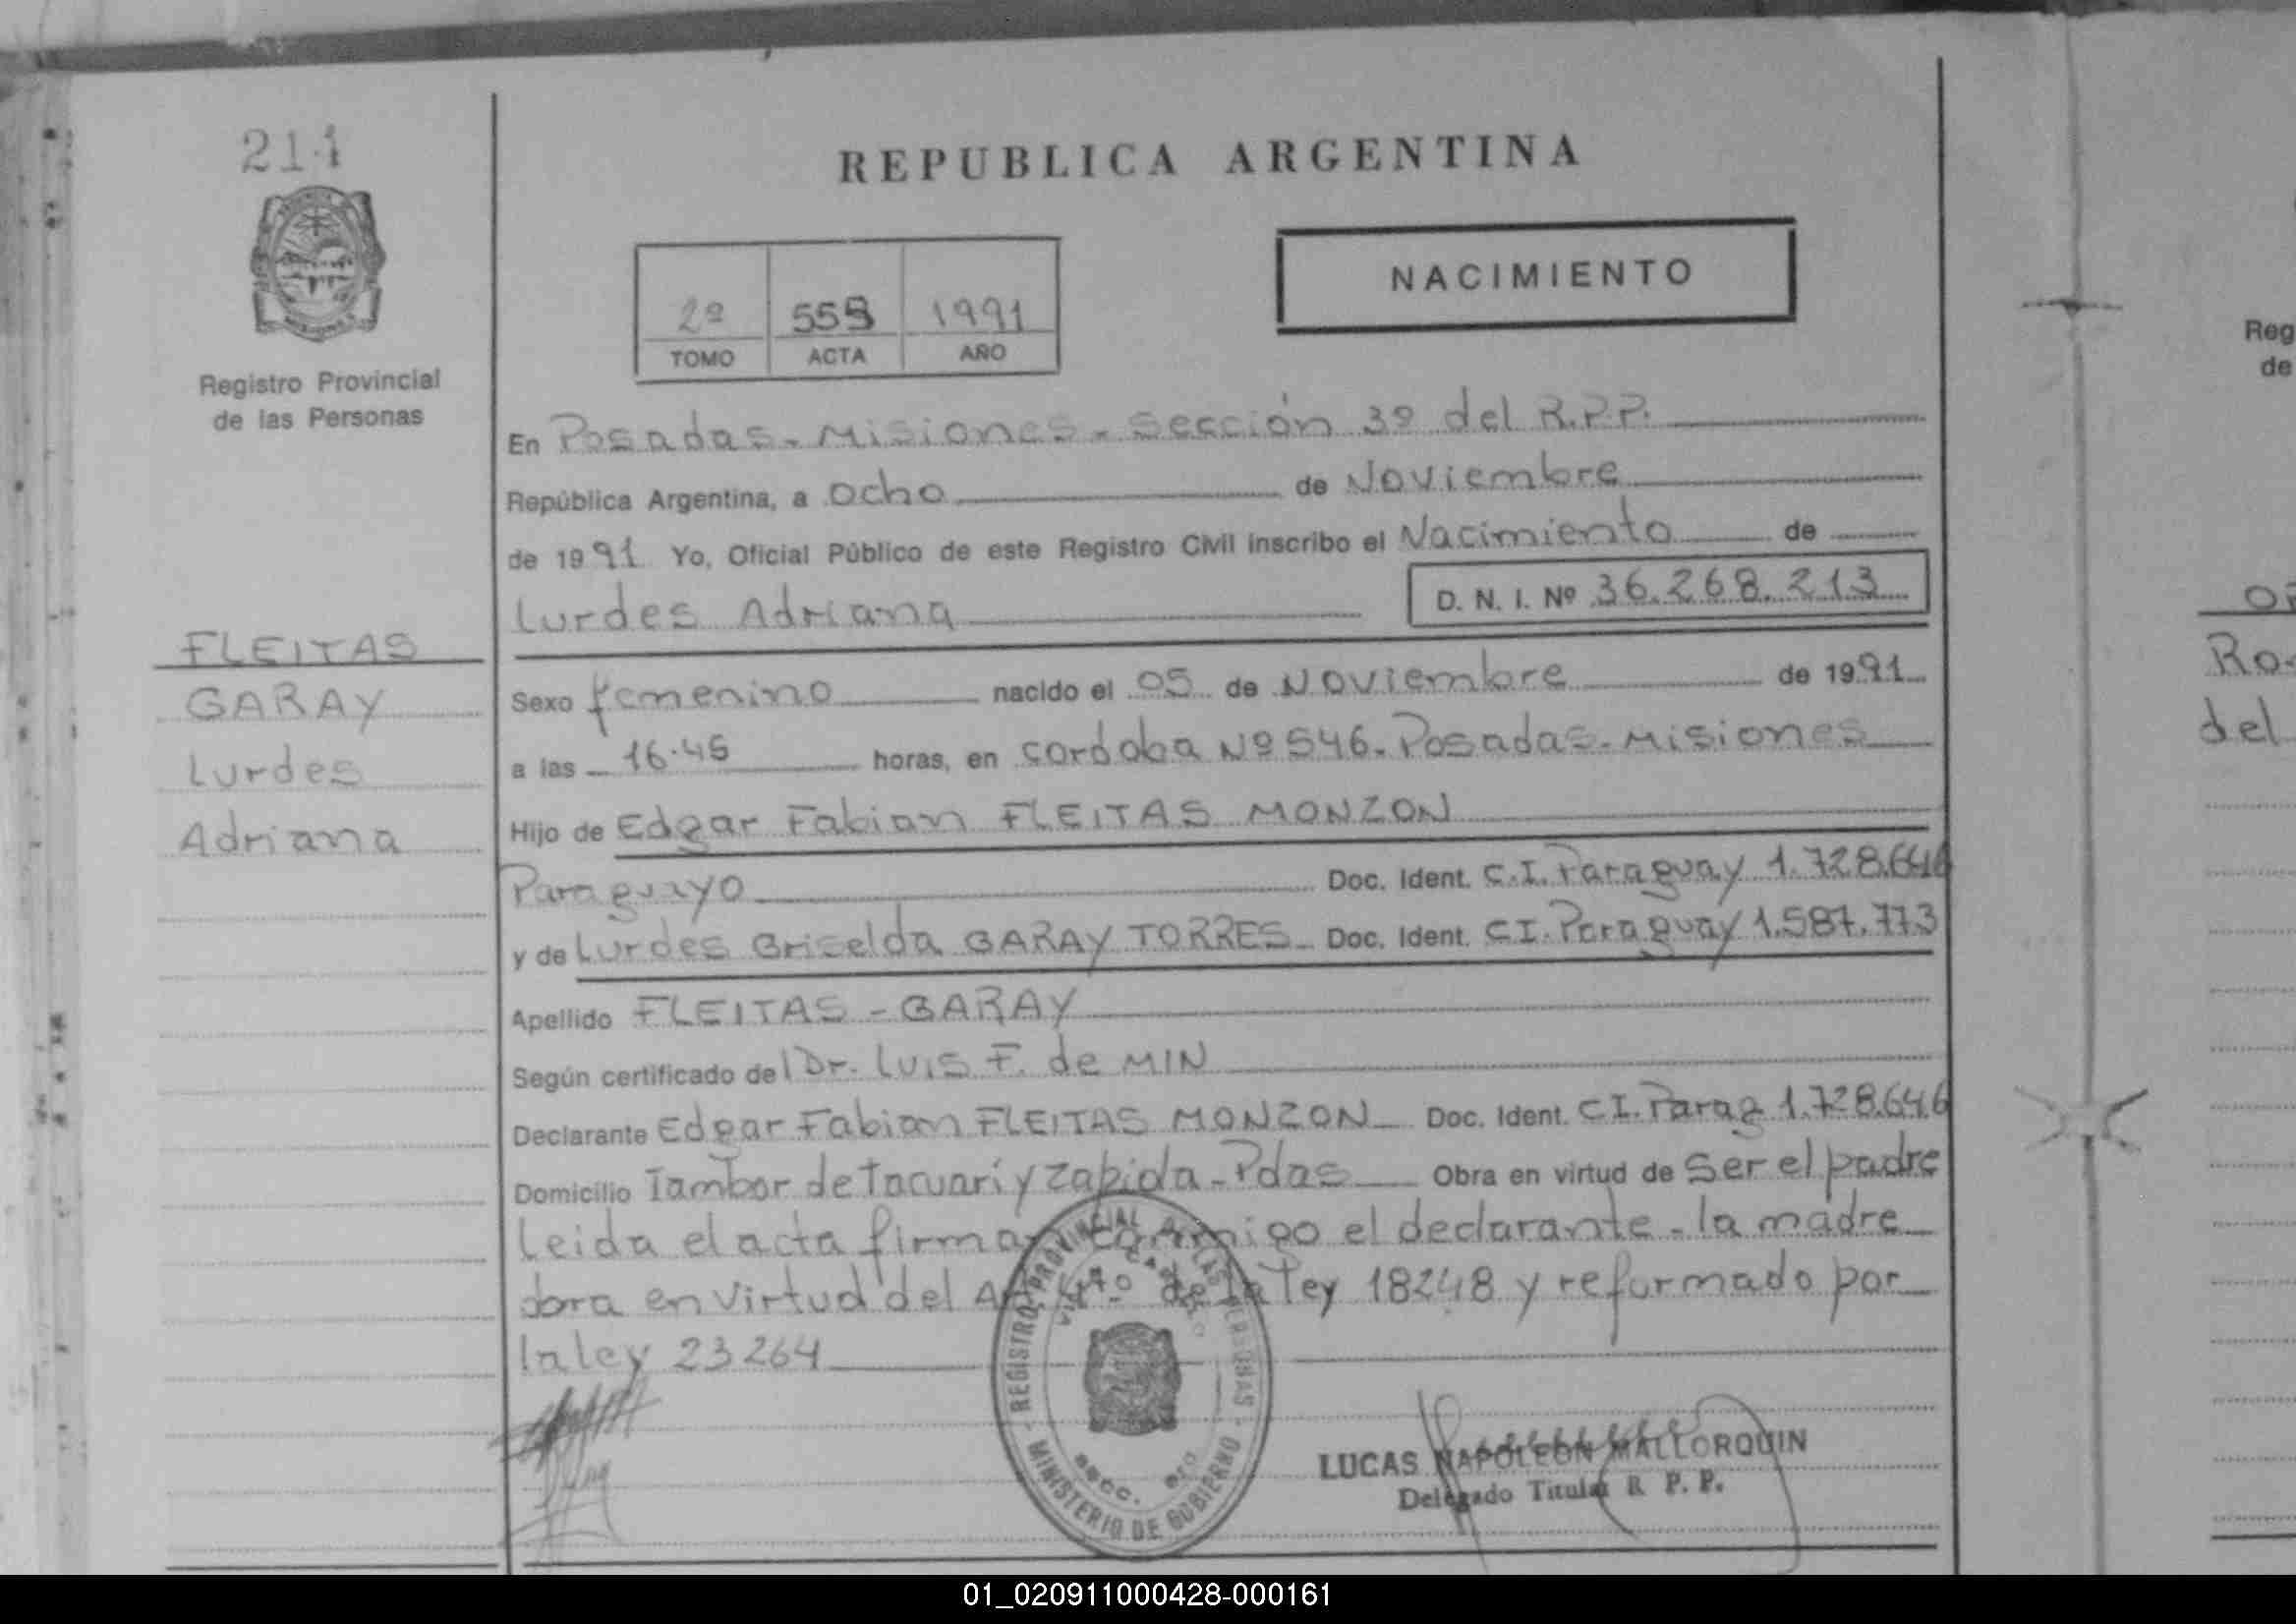 211
REPUBLICA ARGENTINA
NACIMIENTO
2º 559 1991
TOMO ACTA AÑO
Registro Provincial
de las Personas
En Posadas - Misiones - Sección 3º del R.P.P.
República Argentina, a ocho de Noviembre
de 1991 Yo, Oficial Público de este Registro Civil inscribo el Nacimiento de
Lurdes Adriana D. N. I. Nº 36.268.213
FLEITAS
GARAY
Lurdes
Adriana
Sexo femenino nacido el 05 de Noviembre de 1991
a las 16.45 horas, en cordoba Nº 546. Posadas - Misiones
Hijo de Edgar Fabian FLEITAS MONZON
Paraguayo Doc. Ident. C.I. Paraguay 1.728.646
y de Lurdes Griselda GARAY TORRES Doc. Ident. C I. Paraguay 1.587.773
Apellido FLEITAS - GARAY
Según certificado del Dr. Luis F. de MIN
Declarante Edgar Fabian FLEITAS MONZON Doc. Ident. C I. Parag 1.728.646
Domicilio Tambor de Tacuari y Zapiola - Pdas Obra en virtud de Ser el padre
Leida el acta firman conmigo el declarante - la madre
obra en virtud del Art 4to de la ley 18248 y reformado por
la ley 23264
REGISTRO PROVINCIAL DE LAS PERSONAS
MINISTERIO DE GOBIERNO
secc. 3ra
LUCAS NAPOLEON MALLORQUIN
Delegado Titular R. P. P.
Reg
de
Ro
del
01_020911000428-000161